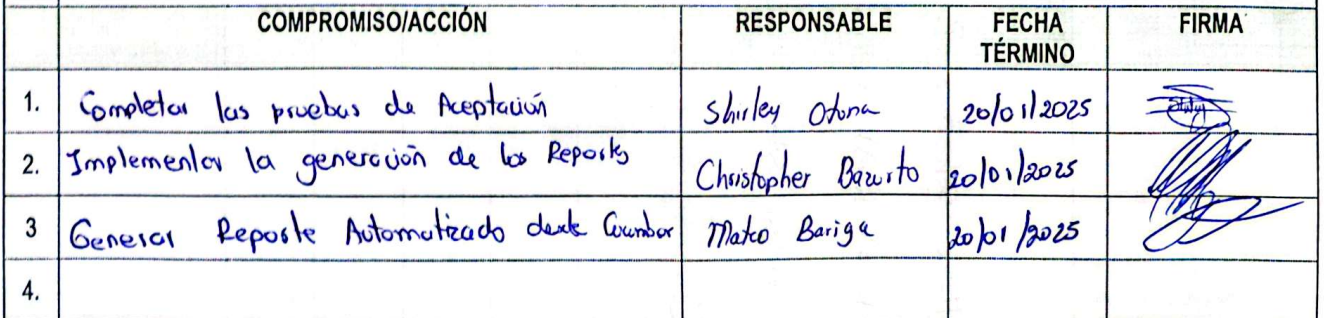 COMPROMISO/ACCIÓN RESPONSABLE FECHA TÉRMINO FIRMA
1. Completar las pruebas de Aceptación Shirley Otona 20/01/2025
2. Implementar la generación de los Reportes Christopher Bazurto 20/01/2025
3 Generar Reporte Automatizado desde Mateo Bariga 20/01/2025
4.